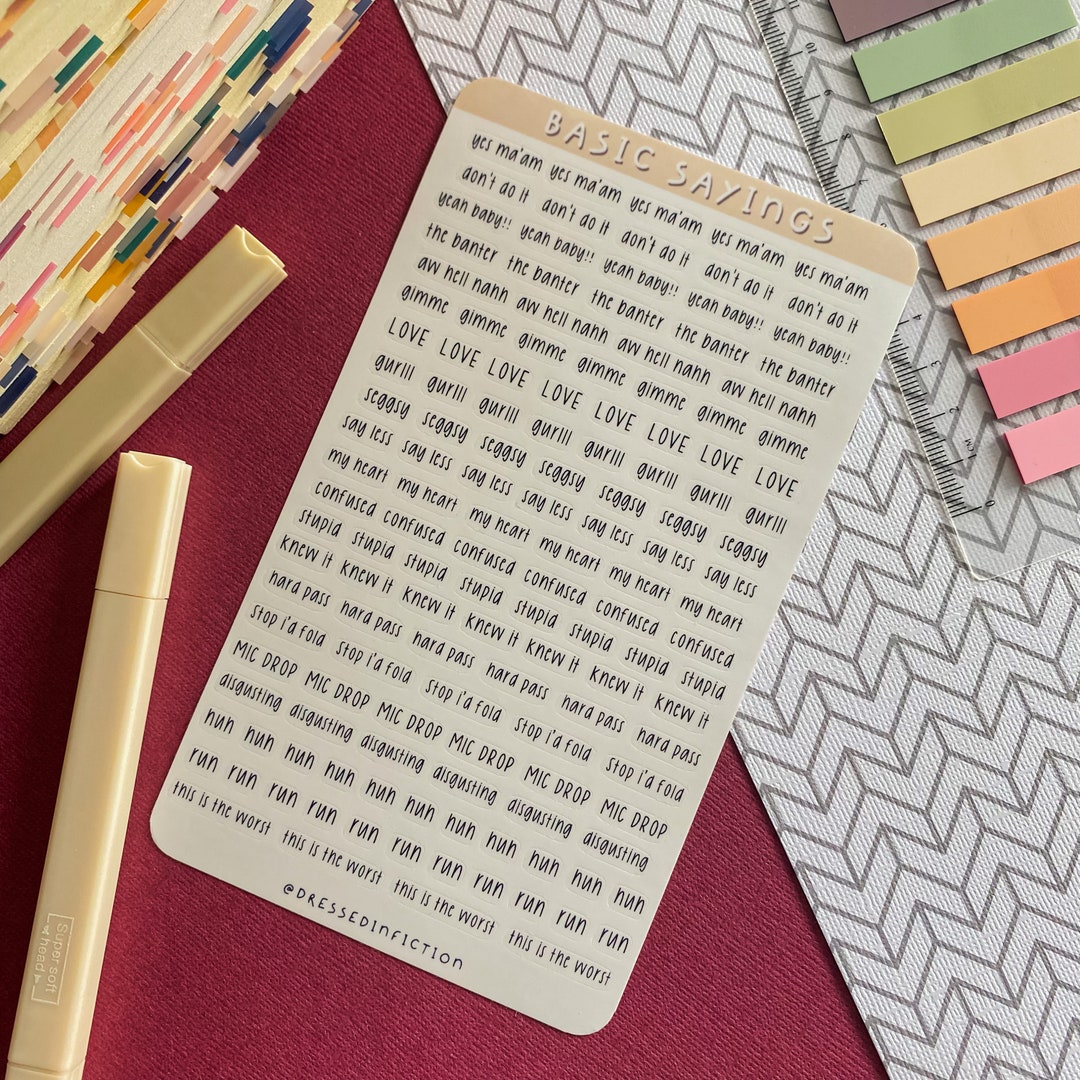 BASIC SAYINGS
yes ma'am yes ma'am yes ma'am yes ma'am yes ma'am
don't do it don't do it don't do it don't do it don't do it
yeah baby!! yeah baby!! yeah baby!! yeah baby!! yeah baby!!
the banter the banter the banter the banter the banter
aw hell nahh aw hell nahh aw hell nahh aw hell nahh
gimme gimme gimme gimme gimme gimme gimme
LOVE LOVE LOVE LOVE LOVE LOVE LOVE LOVE
gurlll gurlll gurlll gurlll gurlll gurlll gurlll gurlll
seggsy seggsy seggsy seggsy seggsy seggsy seggsy
say less say less say less say less say less say less say less
my heart my heart my heart my heart my heart my heart
confused confused confused confused confused confused
stupid stupid stupid stupid stupid stupid stupid stupid
knew it knew it knew it knew it knew it knew it knew it
hard pass hard pass hard pass hard pass hard pass hard pass
stop i'd fold stop i'd fold stop i'd fold stop i'd fold stop i'd fold
MIC DROP MIC DROP MIC DROP MIC DROP MIC DROP MIC DROP
disgusting disgusting disgusting disgusting disgusting disgusting
huh huh huh huh huh huh huh huh huh huh huh
run run run run run run run run run run run
this is the worst this is the worst this is the worst this is the worst
@DRESSEDINFICTION
Super soft
head